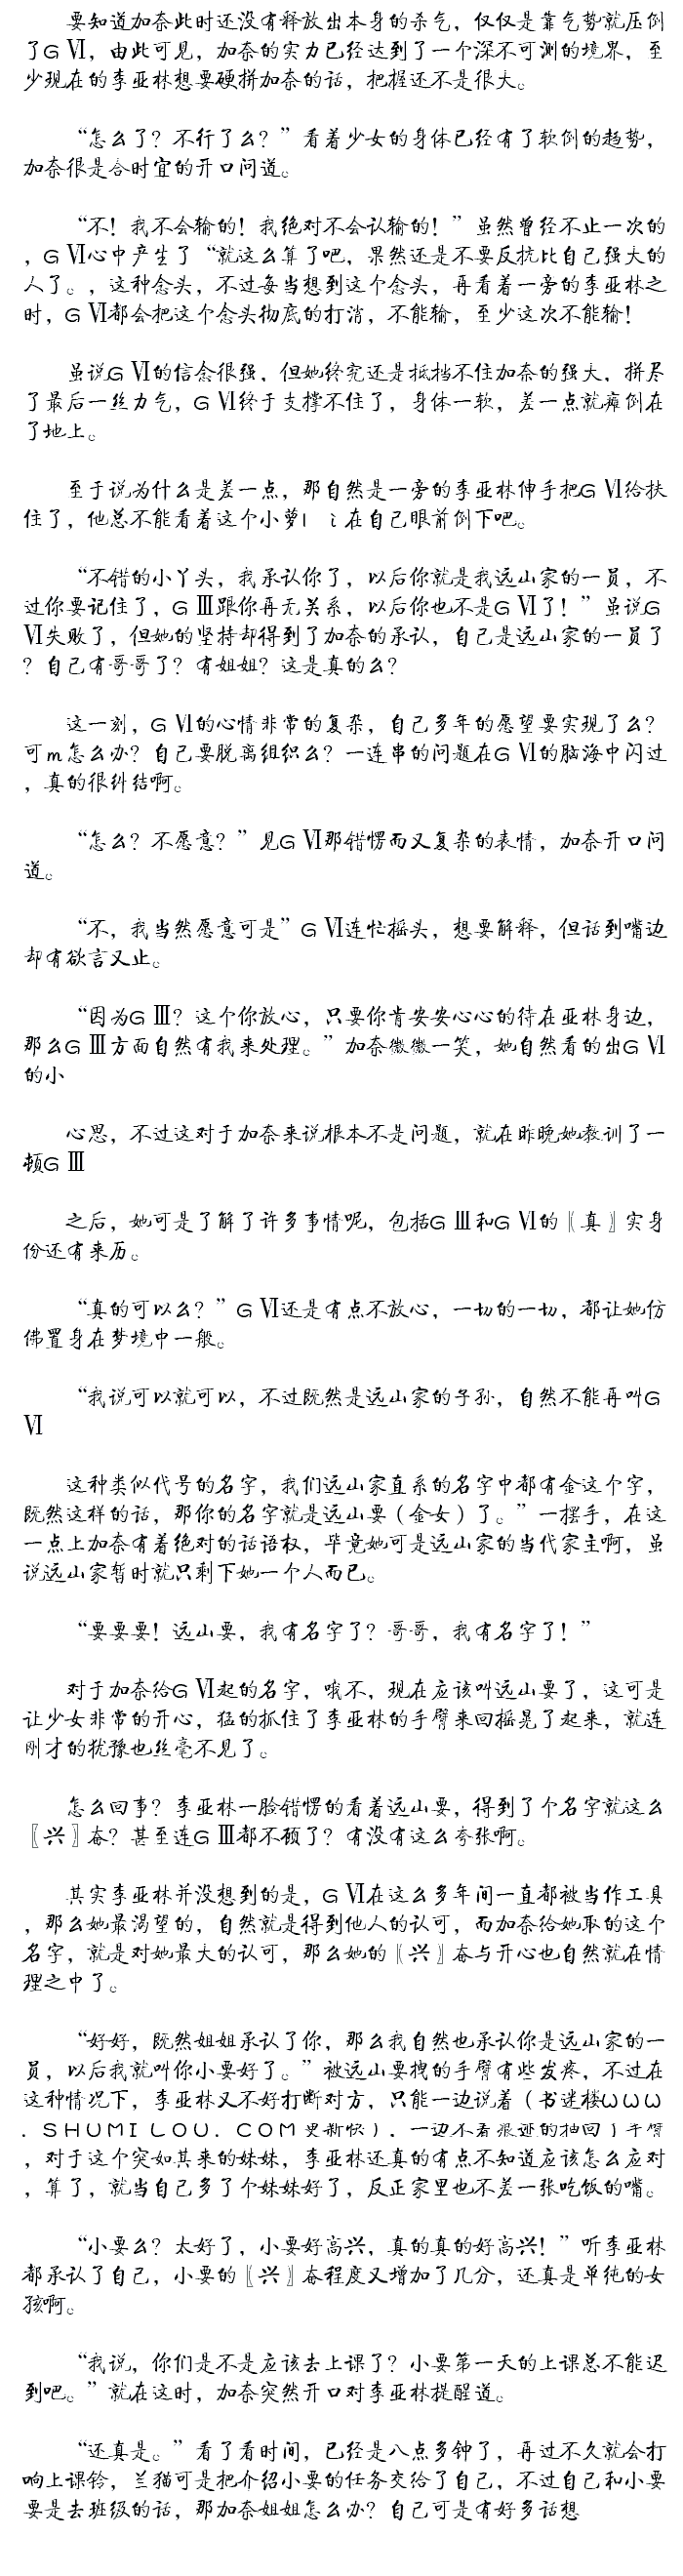 要知道加奈此时还没有释放出本身的杀气，仅仅是靠气势就压倒
了GⅥ，由此可见，加奈的实力已经达到了一个深不可测的境界，至
少现在的李亚林想要硬拼加奈的话，把握还不是很大。
“怎么了？不行了么？”看着少女的身体已经有了软倒的趋势，
加奈很是合时宜的开口问道。
“不！我不会输的！我绝对不会认输的！”虽然曾经不止一次的
，GⅥ心中产生了“就这么算了吧，果然还是不要反抗比自己强大的
人了。，这种念头，不过每当想到这个念头，再看着一旁的李亚林之
时，GⅥ都会把这个念头彻底的打消，不能输，至少这次不能输！
虽说GⅥ的信念很强，但她终究还是抵挡不住加奈的强大，拼尽
了最后一丝力气，GⅥ终于支撑不住了，身体一软，差一点就瘫倒在
了地上。
至于说为什么是差一点，那自然是一旁的李亚林伸手把GⅥ给扶
住了，他总不能看着这个小萝l i在自己眼前倒下吧。
“不错的小丫头，我承认你了，以后你就是我远山家的一员，不
过你要记住了，GⅢ跟你再无关系，以后你也不是GⅥ了！”虽说G
Ⅵ失败了，但她的坚持却得到了加奈的承认，自己是远山家的一员了
？自己有哥哥了？有姐姐？这是真的么？
这一刻，GⅥ的心情非常的复杂，自己多年的愿望要实现了么？
可m怎么办？自己要脱离组织么？一连串的问题在GⅥ的脑海中闪过
，真的很纠结啊。
“怎么？不愿意？”见GⅥ那错愕而又复杂的表情，加奈开口问
道。
“不，我当然愿意可是”GⅥ连忙摇头，想要解释，但话到嘴边
却有欲言又止。
“因为GⅢ？这个你放心，只要你肯安安心心的待在亚林身边，
那么GⅢ方面自然有我来处理。”加奈微微一笑，她自然看的出GⅥ
的小
心思，不过这对于加奈来说根本不是问题，就在昨晚她教训了一
顿GⅢ
之后，她可是了解了许多事情呢，包括GⅢ和GⅥ的〖真〗实身
份还有来历。
“真的可以么？”GⅥ还是有点不放心，一切的一切，都让她仿
佛置身在梦境中一般。
“我说可以就可以，不过既然是远山家的子孙，自然不能再叫G
Ⅵ
这种类似代号的名字，我们远山家直系的名字中都有金这个字，
既然这样的话，那你的名字就是远山要（金女）了。”一摆手，在这
一点上加奈有着绝对的话语权，毕竟她可是远山家的当代家主啊，虽
说远山家暂时就只剩下她一个人而已。
“要要要！远山要，我有名字了？哥哥，我有名字了！”
对于加奈给GⅥ起的名字，哦不，现在应该叫远山要了，这可是
让少女非常的开心，猛的抓住了李亚林的手臂来回摇晃了起来，就连
刚才的犹豫也丝毫不见了。
怎么回事？李亚林一脸错愕的看着远山要，得到了个名字就这么
〖兴〗奋？甚至连GⅢ都不顾了？有没有这么夸张啊。
其实李亚林并没想到的是，GⅥ在这么多年间一直都被当作工具
，那么她最渴望的，自然就是得到他人的认可，而加奈给她取的这个
名字，就是对她最大的认可，那么她的〖兴〗奋与开心也自然就在情
理之中了。
“好好，既然姐姐承认了你，那么我自然也承认你是远山家的一
员，以后我就叫你小要好了。”被远山要拽的手臂有些发疼，不过在
这种情况下，李亚林又不好打断对方，只能一边说着（书迷楼WWW
．SHUMILOU．COM更新快），一边不着痕迹的抽回了手臂
，对于这个突如其来的妹妹，李亚林还真的有点不知道应该怎么应对
，算了，就当自己多了个妹妹好了，反正家里也不差一张吃饭的嘴。
“小要么？太好了，小要好高兴，真的真的好高兴！”听李亚林
都承认了自己，小要的〖兴〗奋程度又增加了几分，还真是单纯的女
孩啊。
“我说，你们是不是应该去上课了？小要第一天的上课总不能迟
到吧。”就在这时，加奈突然开口对李亚林提醒道。
“还真是。”看了看时间，已经是八点多钟了，再过不久就会打
响上课铃，兰猫可是把介绍小要的任务交给了自己，不过自己和小要
要是去班级的话，那加奈姐姐怎么办？自己可是有好多话想